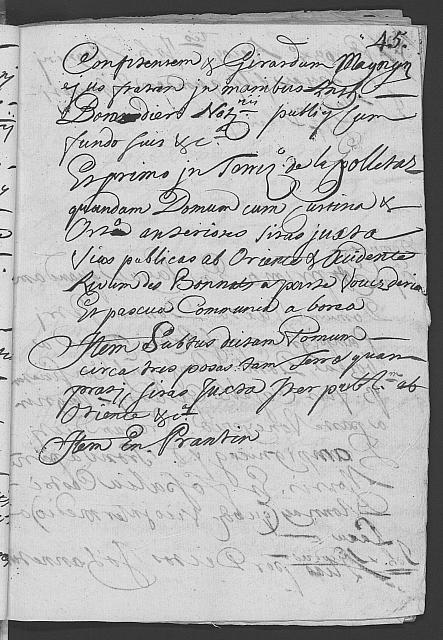 45.
Confitentem & Girardum Mayoryn
ejus fratrem in manibus
Bonadiers Notrii publiq Cum
fundo suis &c.a
Et primo in Terri.o de la Polletaz
quandam Domum cum Curtena &
Orto anteriores sitas juxta
Vias publicas ab Oriente & Occidente
Rivum des Bonnes a parte
Et pascua Communia a borea
Item Subtus dictam Domum
circa tres posas tam Terra quam
prati sitas juxta Iter publ.m ab
Oriente &c.a
Item En Prantin